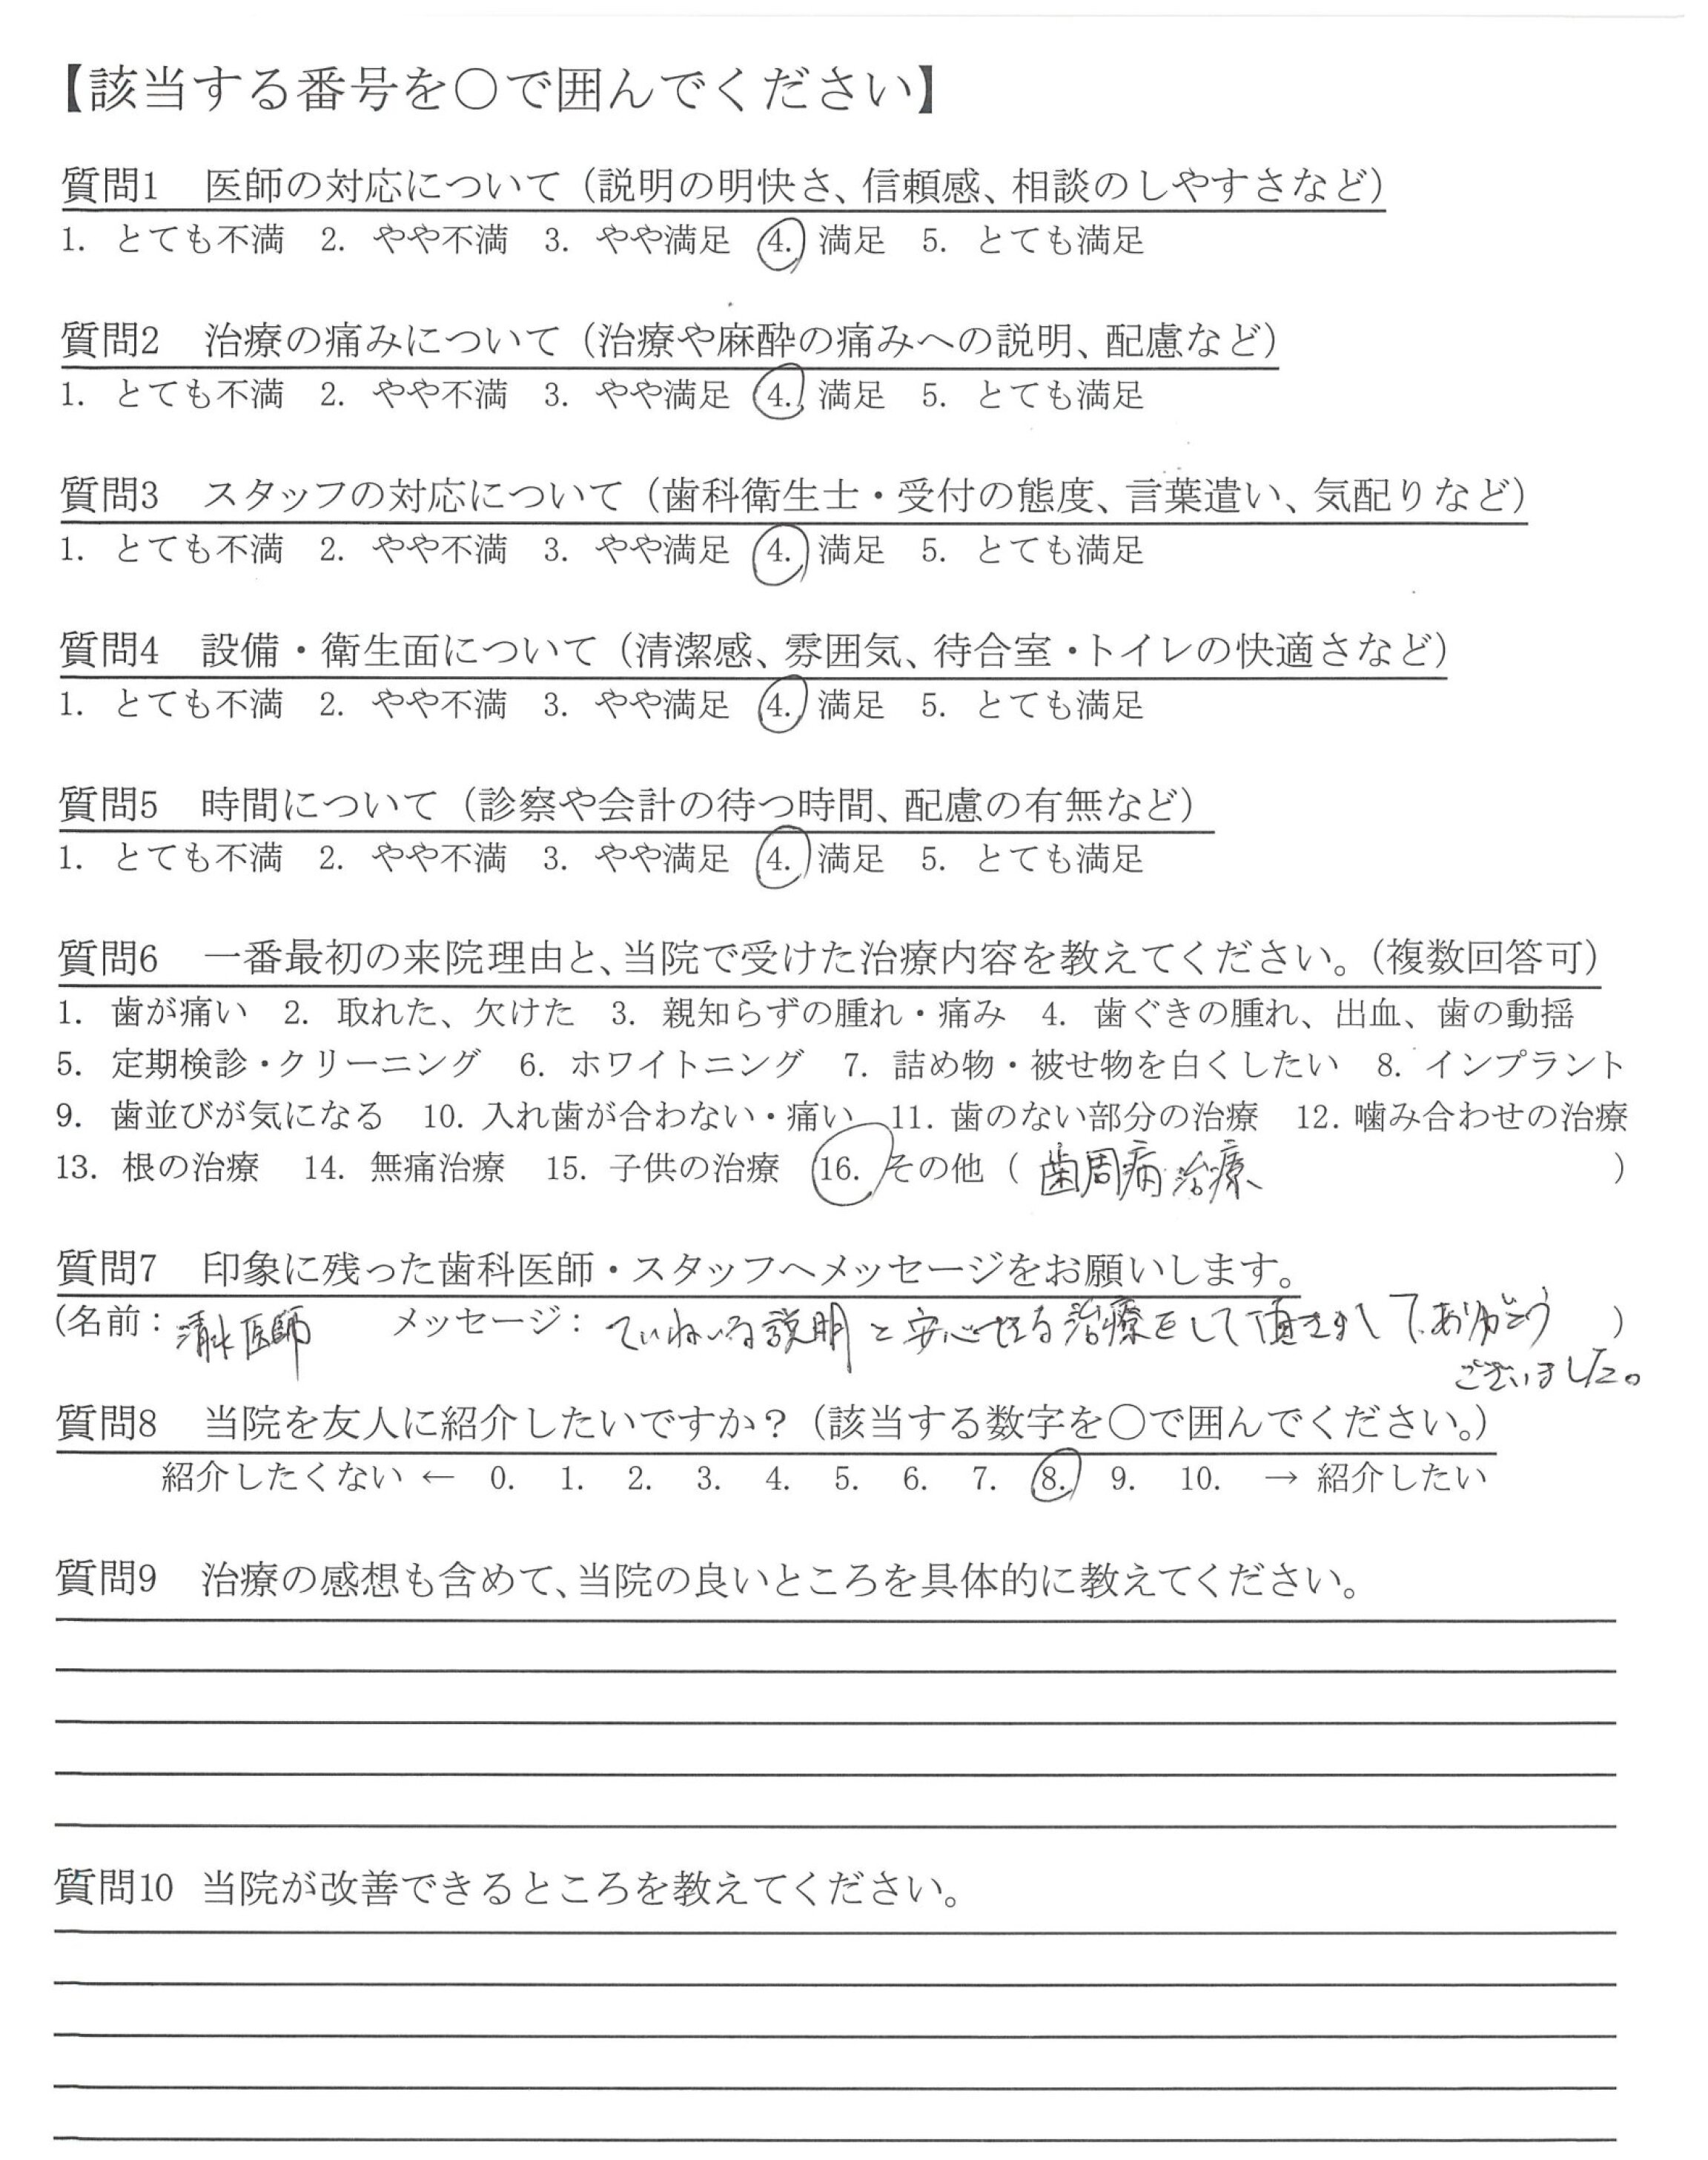 【該当する番号を○で囲んでください】
質問1 医師の対応について（説明の明快さ、信頼感、相談のしやすさなど）
1. とても不満 2. やや不満 3. やや満足 4. 満足 5. とても満足
質問2 治療の痛みについて（治療や麻酔の痛みへの説明、配慮など）
1. とても不満 2. やや不満 3. やや満足 4. 満足 5. とても満足
質問3 スタッフの対応について（歯科衛生士・受付の態度、言葉遣い、気配りなど）
1. とても不満 2. やや不満 3. やや満足 4. 満足 5. とても満足
質問4 設備・衛生面について（清潔感、雰囲気、待合室・トイレの快適さなど）
1. とても不満 2. やや不満 3. やや満足 4. 満足 5. とても満足
質問5 時間について（診察や会計の待つ時間、配慮の有無など）
1. とても不満 2. やや不満 3. やや満足 4. 満足 5. とても満足
質問6 一番最初の来院理由と、当院で受けた治療内容を教えてください。（複数回答可）
1. 歯が痛い 2. 取れた、欠けた 3. 親知らずの腫れ・痛み 4. 歯ぐきの腫れ、出血、歯の動揺
5. 定期検診・クリーニング 6. ホワイトニング 7. 詰め物・被せ物を白くしたい 8. インプラント
9. 歯並びが気になる 10. 入れ歯が合わない・痛い 11. 歯のない部分の治療 12. 噛み合わせの治療
13. 根の治療 14. 無痛治療 15. 子供の治療 16. その他（歯周病治療）
質問7 印象に残った歯科医師・スタッフへメッセージをお願いします。
（名前：清水医師 メッセージ：ていねいな説明と安心せる治療をして頂きまして、ありがとう）
ございました。
質問8 当院を友人に紹介したいですか？（該当する数字を○で囲んでください。）
紹介したくない ← 0. 1. 2. 3. 4. 5. 6. 7. 8. 9. 10. → 紹介したい
質問9 治療の感想も含めて、当院の良いところを具体的に教えてください。
質問10 当院が改善できるところを教えてください。